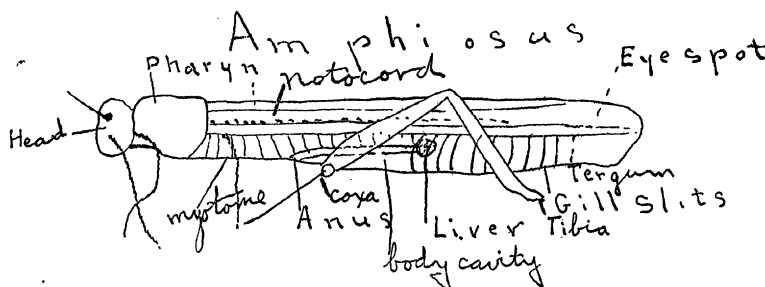 Amphiosus
Pharyn
notocord
Eye spot
Head
myotome
coxa
Anus
Liver
body cavity
Tergum
Gill Slits
Tibia